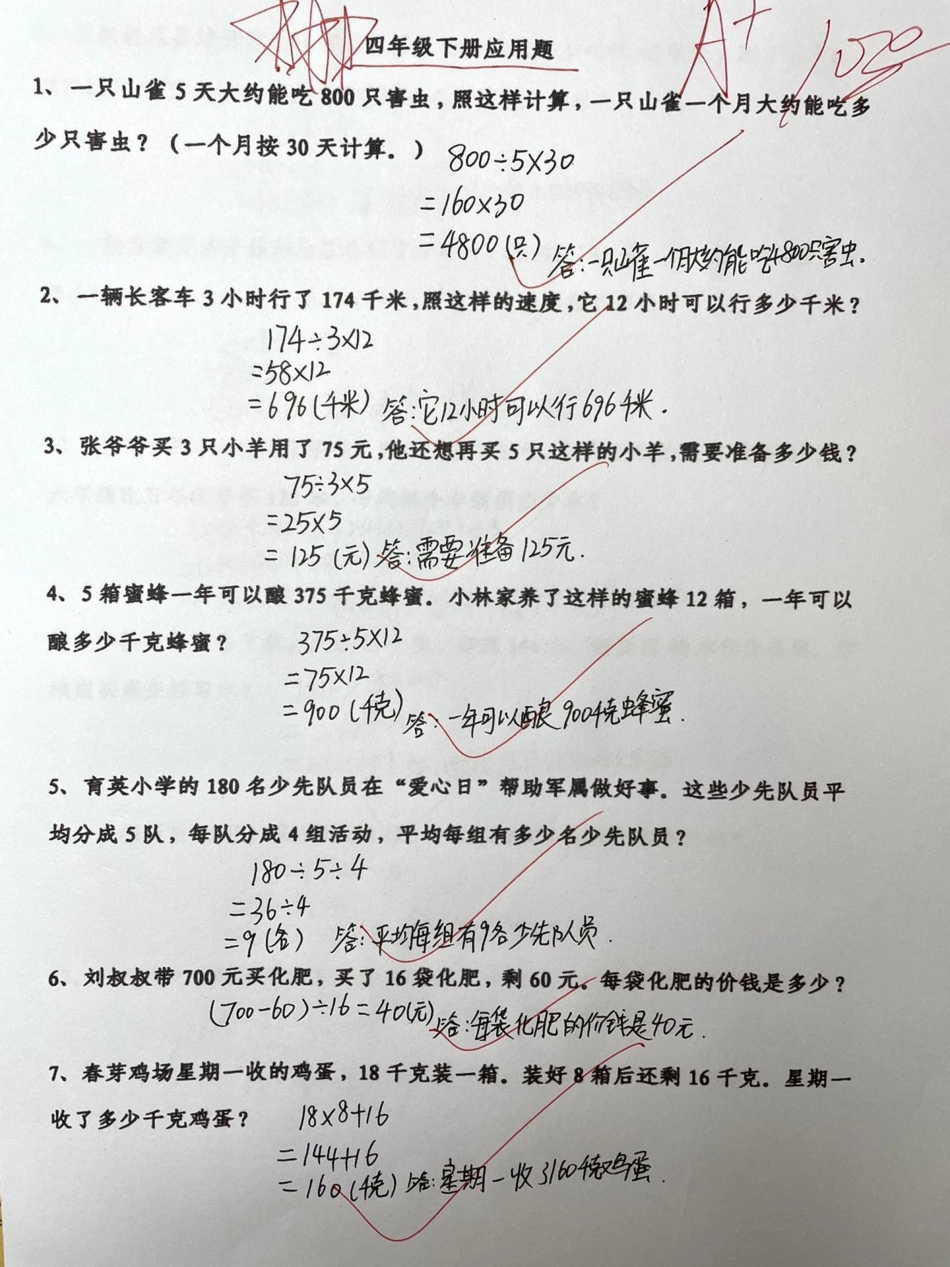 棒棒
四年级下册应用题
A+
1、一只山雀 5 天大约能吃 800 只害虫，照这样计算，一只山雀一个月大约能吃多
少只害虫？（一个月按 30 天计算。）
800÷5×30
=160×30
=4800(只) 答:一只山雀一个月大约能吃4800只害虫.
2、一辆长客车 3 小时行了 174 千米,照这样的速度,它 12 小时可以行多少千米？
174÷3×12
=58×12
=696(千米) 答:它12小时可以行696千米.
3、张爷爷买 3 只小羊用了 75 元,他还想再买 5 只这样的小羊,需要准备多少钱？
75÷3×5
=25×5
=125(元) 答:需要准备125元.
4、5 箱蜜蜂一年可以酿 375 千克蜂蜜。小林家养了这样的蜜蜂 12 箱，一年可以
酿多少千克蜂蜜？ 375÷5×12
=75×12
=900(千克) 答:一年可以酿900千克蜂蜜.
5、育英小学的 180 名少先队员在“爱心日”帮助军属做好事。这些少先队员平
均分成 5 队，每队分成 4 组活动，平均每组有多少名少先队员？
180÷5÷4
=36÷4
=9(名) 答:平均每组有9名少先队员.
6、刘叔叔带 700 元买化肥，买了 16 袋化肥，剩 60 元。每袋化肥的价钱是多少？
(700-60)÷16=40(元) 答:每袋化肥的价钱是40元.
7、春芽鸡场星期一收的鸡蛋，18 千克装一箱。装好 8 箱后还剩 16 千克。星期一
收了多少千克鸡蛋？ 18×8+16
=144+16
=160(千克) 答:星期一收了160千克鸡蛋.